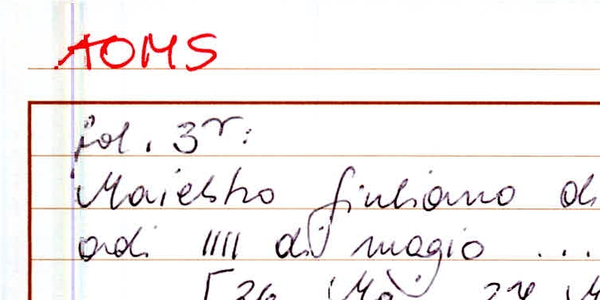 AOMS
fol. 3r:
Maiestro Giuliano di
adi IIII di magio ...
[26